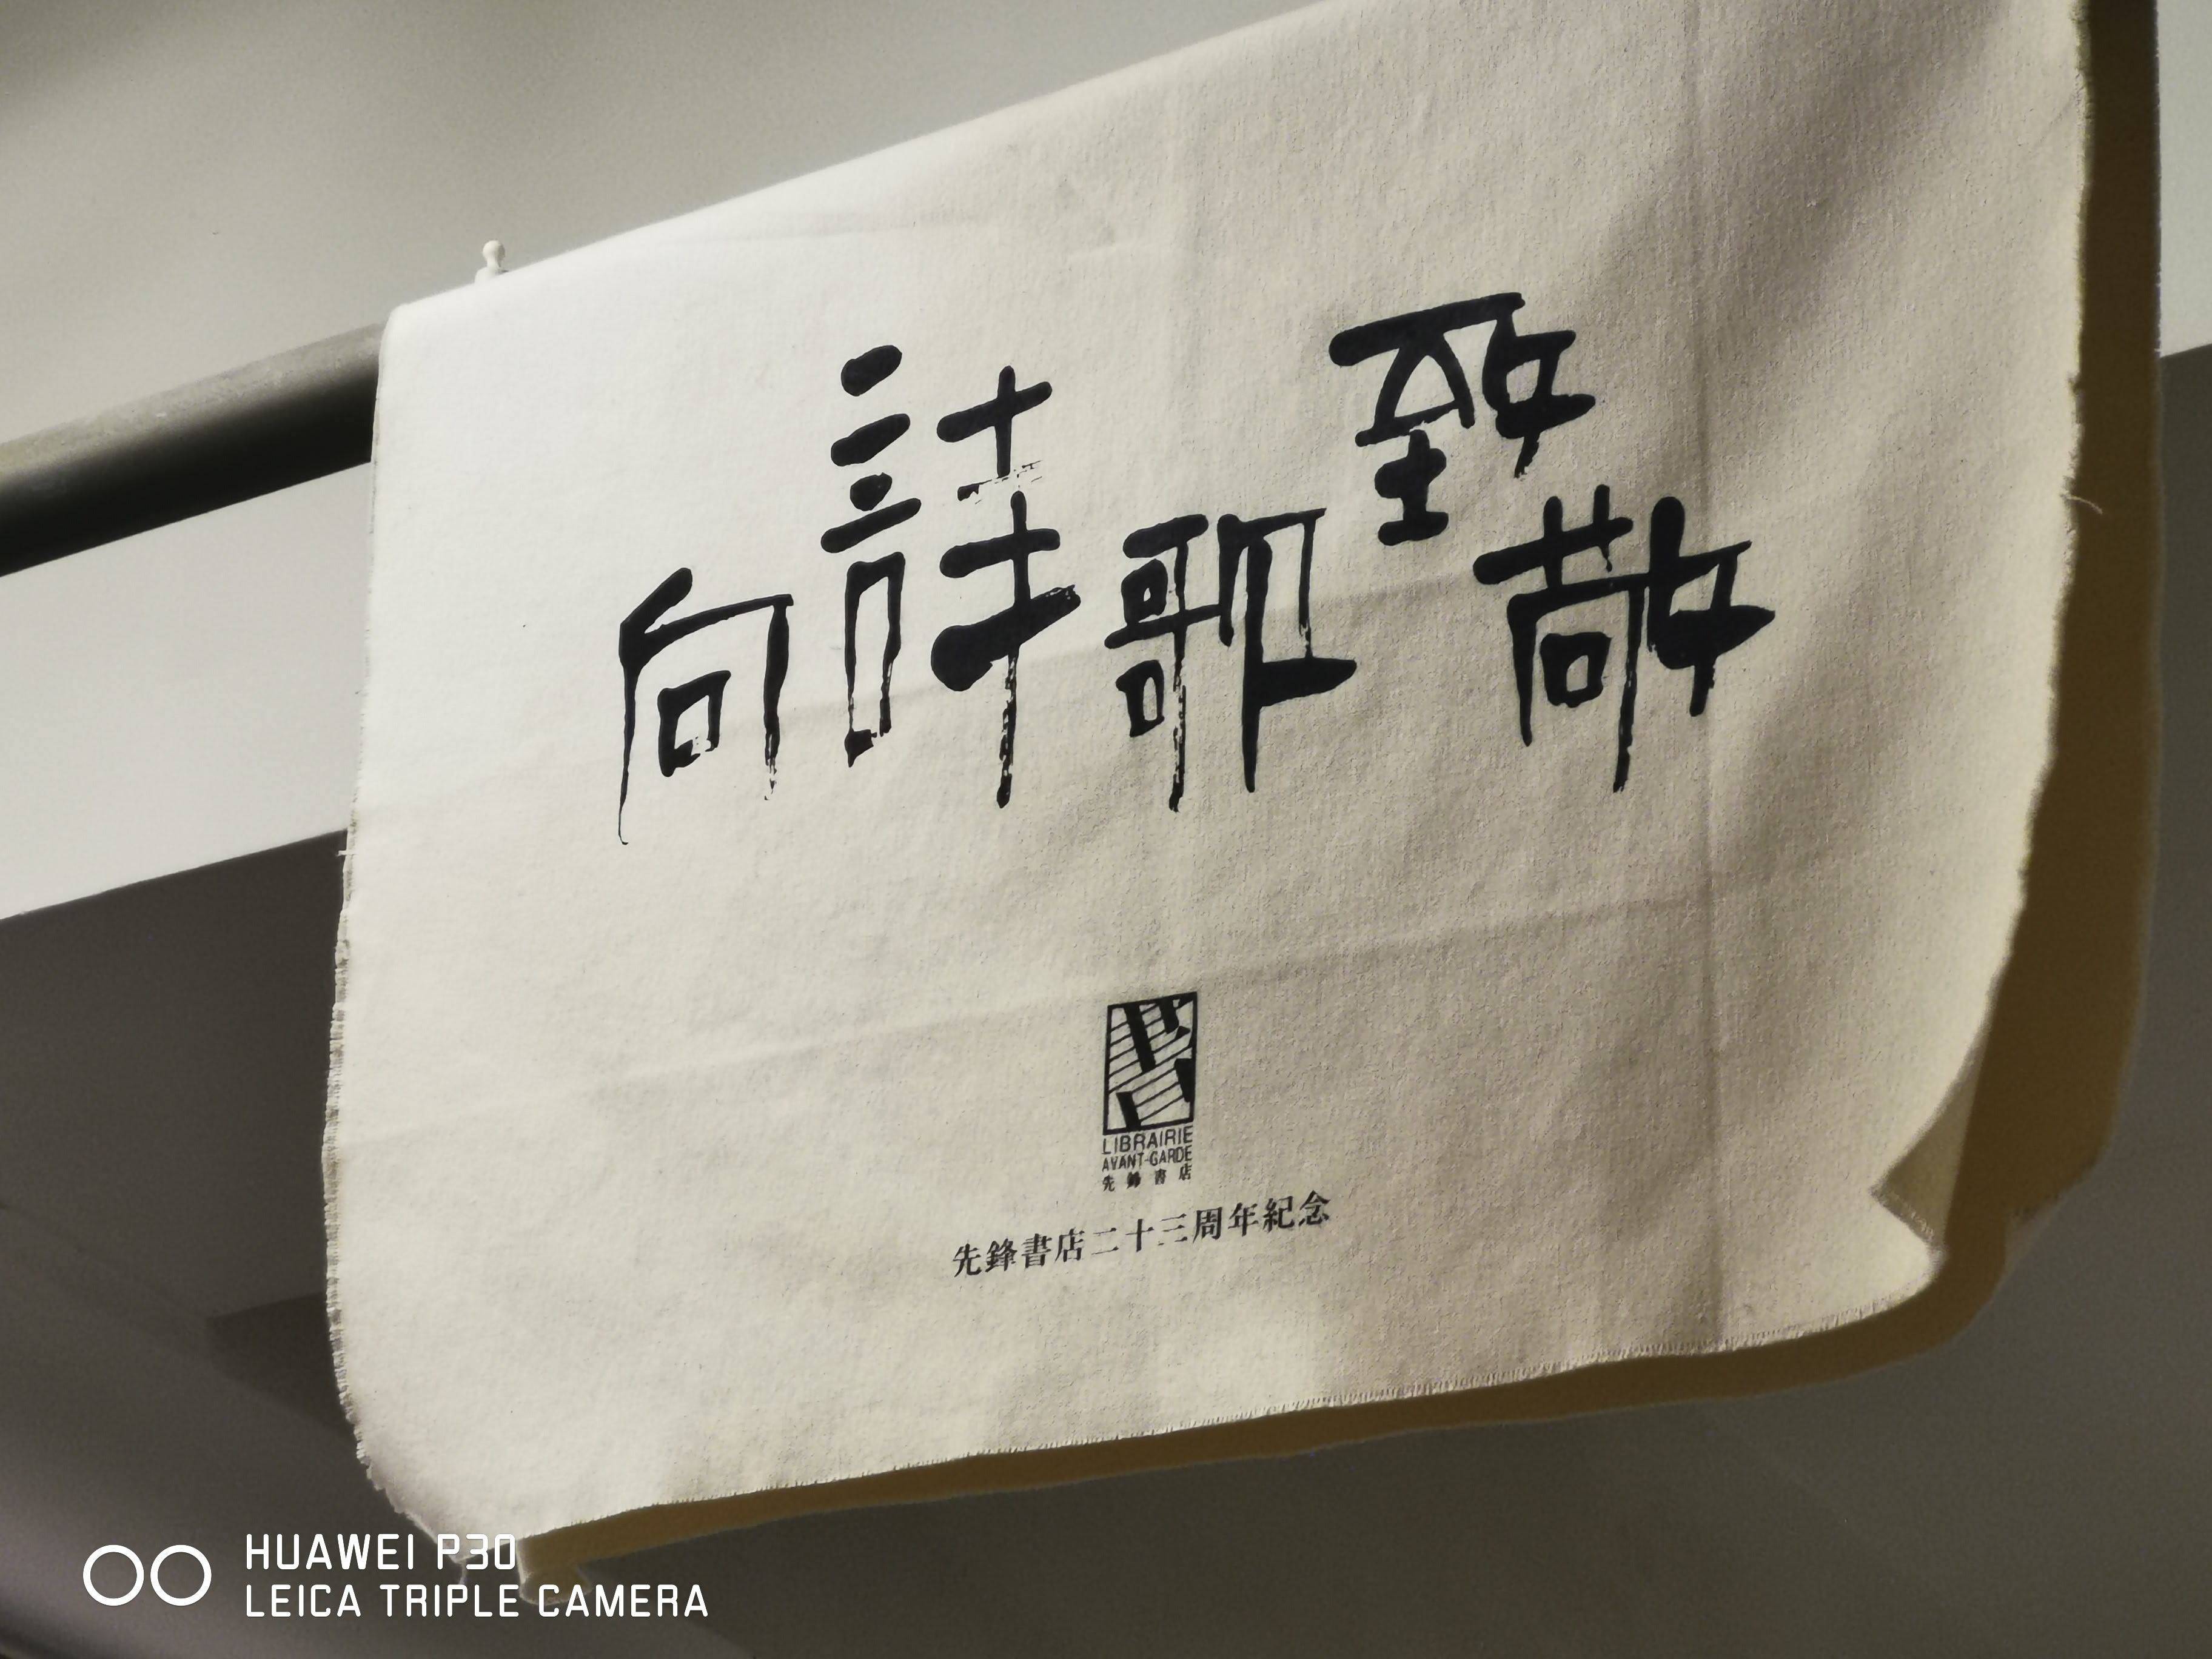 向詩歌致敬
LIBRAIRIE
AVANT-GARDE
先鋒書店
先鋒書店二十三周年紀念
HUAWEI P30
LEICA TRIPLE CAMERA